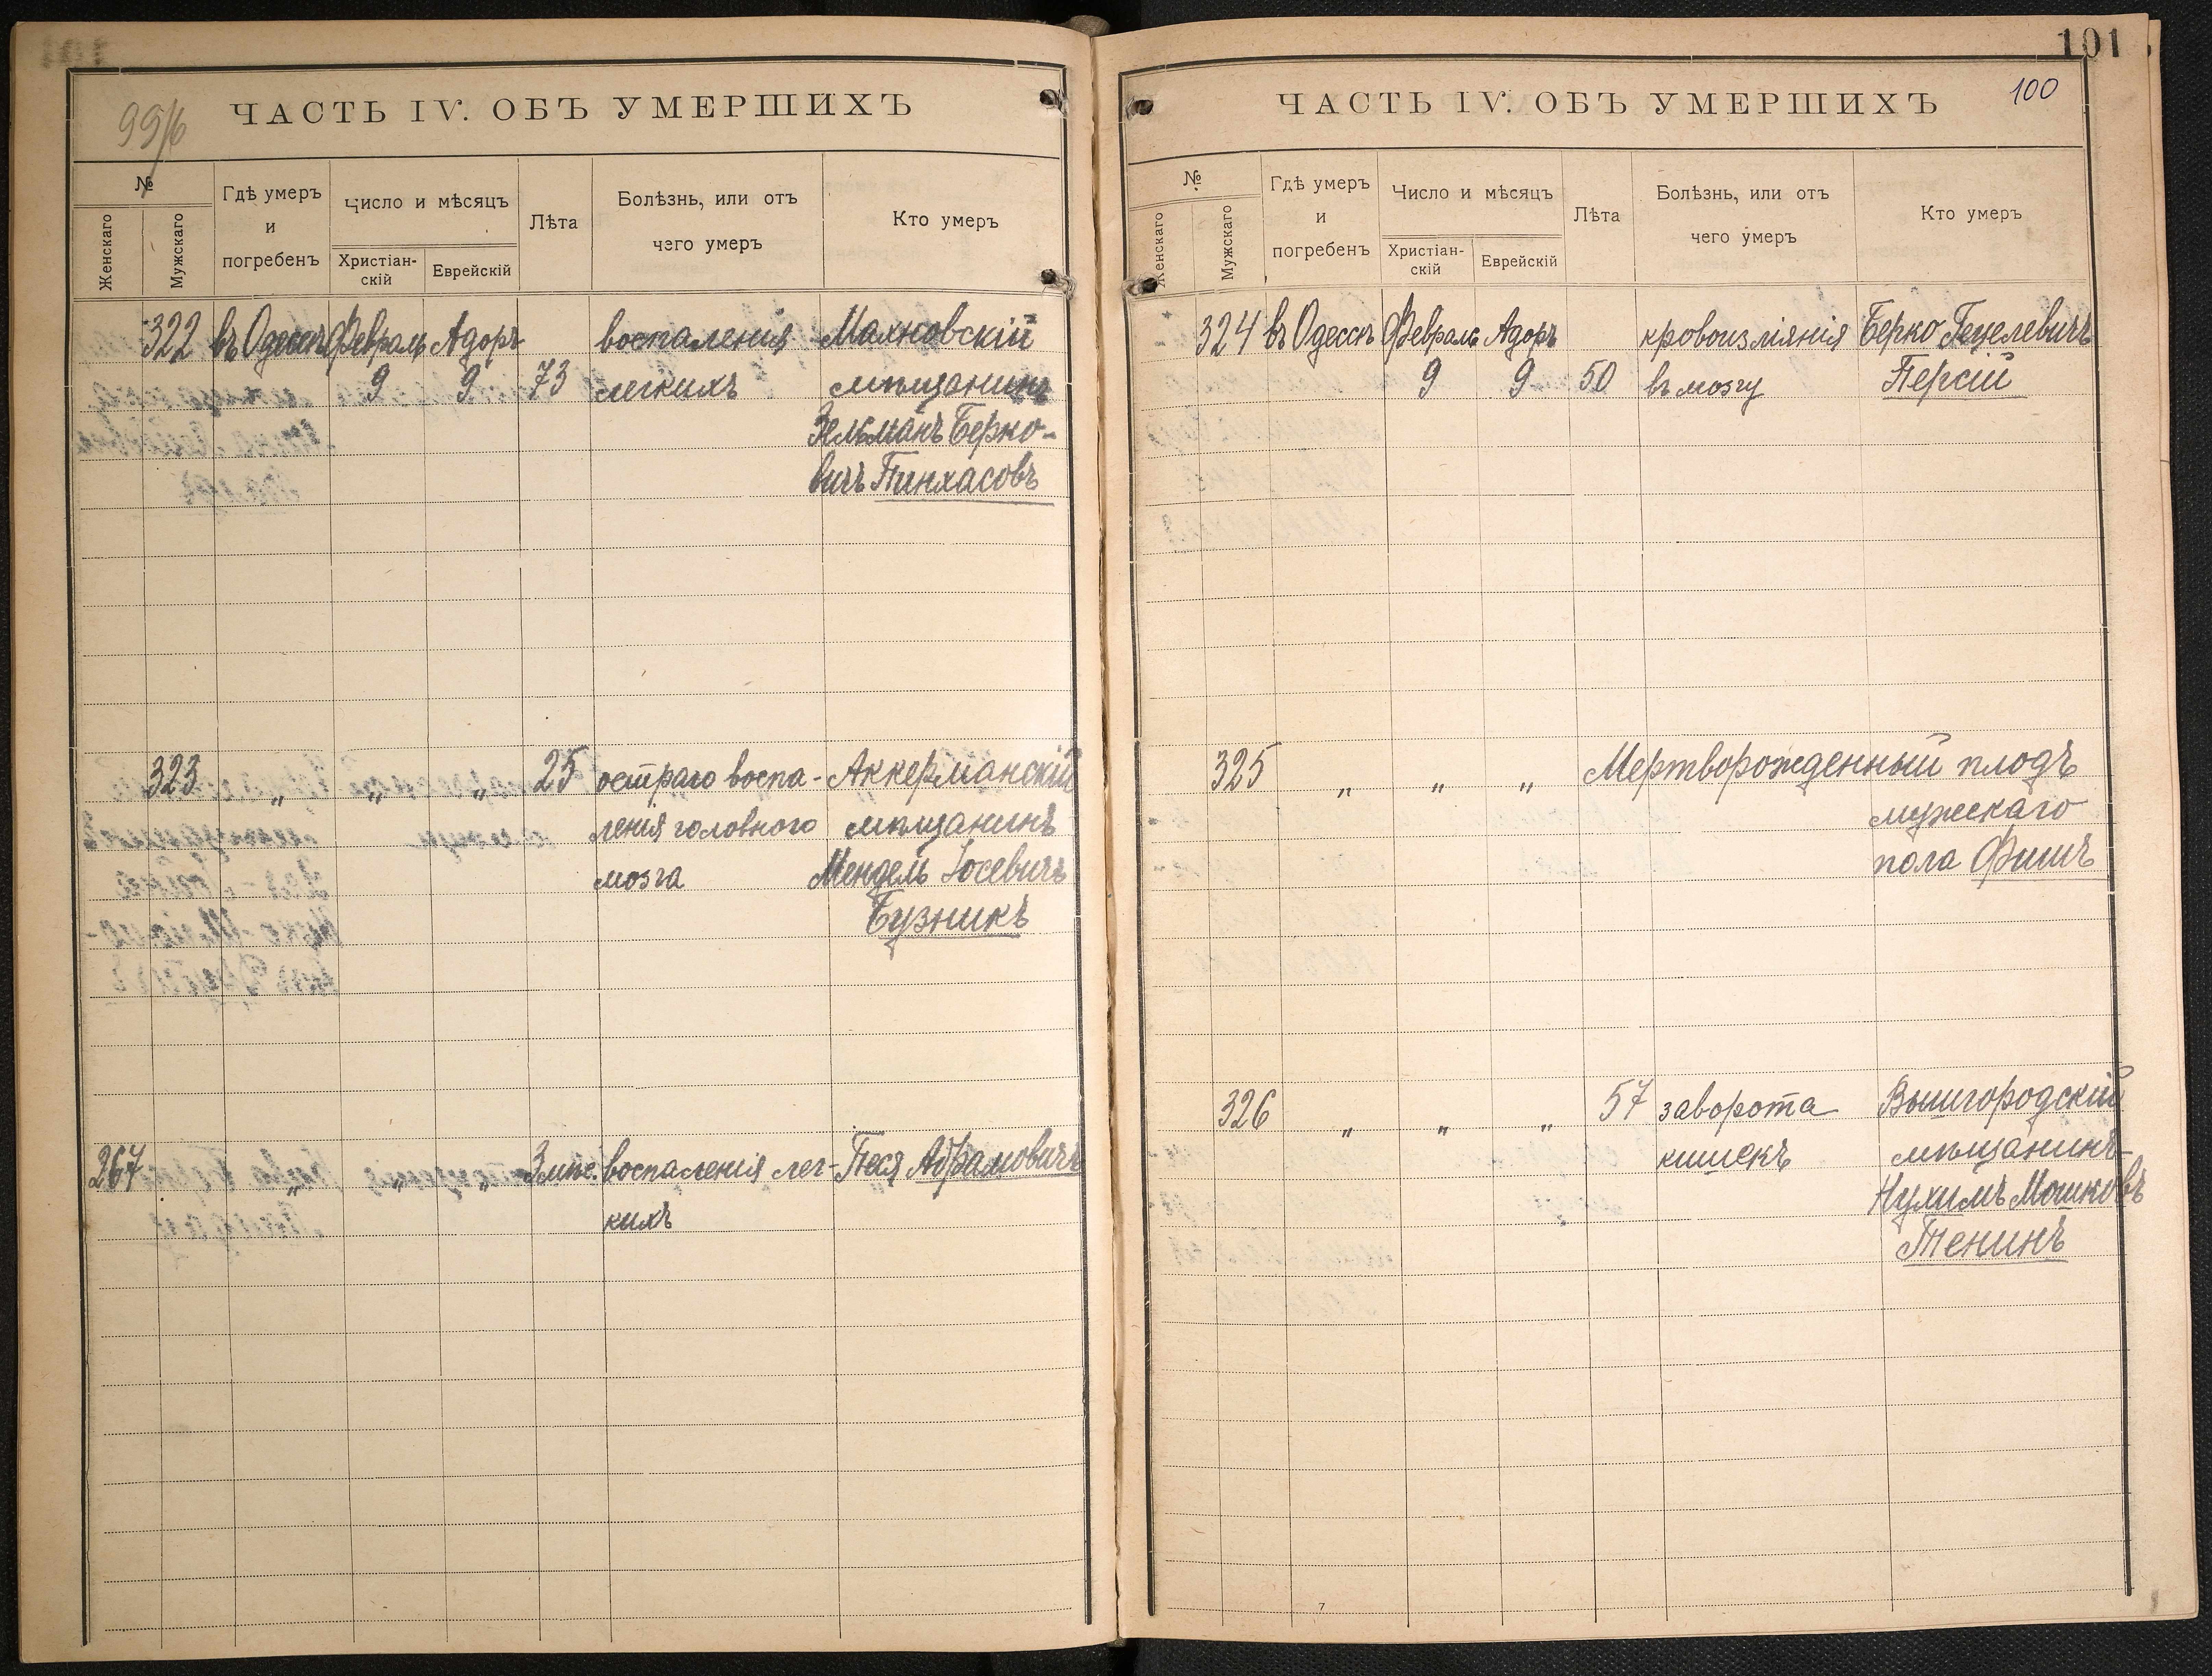 99/16
ЧАСТЬ IV. ОБЪ УМЕРШИХЪ
№
Женскаго
Мужскаго
Гдѣ умеръ и погребенъ
Число и мѣсяцъ
Христіан-
скій
Еврейскій
Лѣта
Болѣзнь, или отъ
чего умеръ
Кто умеръ
322 въ Одессѣ Февраль Адоръ воспаленія Махновскій
9 9 73 легкихъ мѣщанинъ
Зельманъ Берко-
вичъ Пинхасовъ
323 „ „ „ 25 остраго воспа- Аккерманскій
ленія головного мѣщанинъ
мозга Мендель Іосевичъ
Бузникъ
267 „ „ „ 3 мѣс. воспаленія лег- Песя Абрамовичъ
кихъ
101
100
ЧАСТЬ IV. ОБЪ УМЕРШИХЪ
№
Женскаго
Мужскаго
Гдѣ умеръ
и
погребенъ
Число и мѣсяцъ
Христіан-
скій
Еврейскій
Лѣта
Болѣзнь, или отъ
чего умеръ
Кто умеръ
324 въ Одессѣ Февраль Адоръ кровоизліянія Берко Гецелевичъ
9 9 50 въ мозгу Персій
325 „ „ „ Мертворожденный плодъ
мужескаго
пола Фишъ
326 „ „ „ 57 заворота Вышгородскій
кишекъ мѣщанинъ
Нухимъ Мошковъ
Тенинъ
7